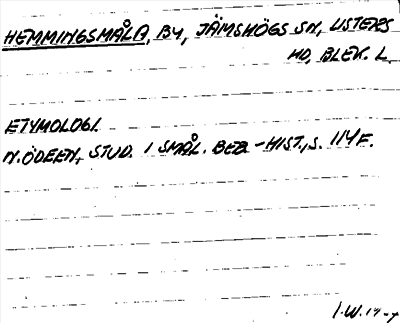 HEMMINGSMÅLA, BY, JÄMSHÖGS SN, LISTERS
HD, BLEK. L.
ETYMOLOGI.
N. ÖDEEN, STUD. I SMÅL. BEB-HIST., S. 114 F.
I.W.